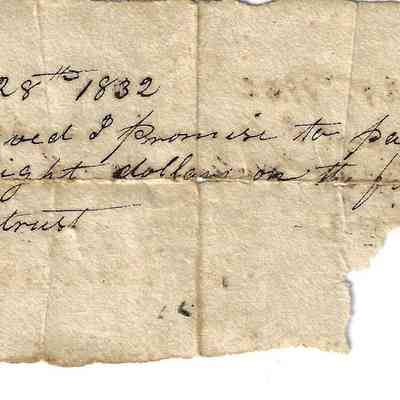 28th 1832
ved I promise to pa
ight dollars on the f
trust